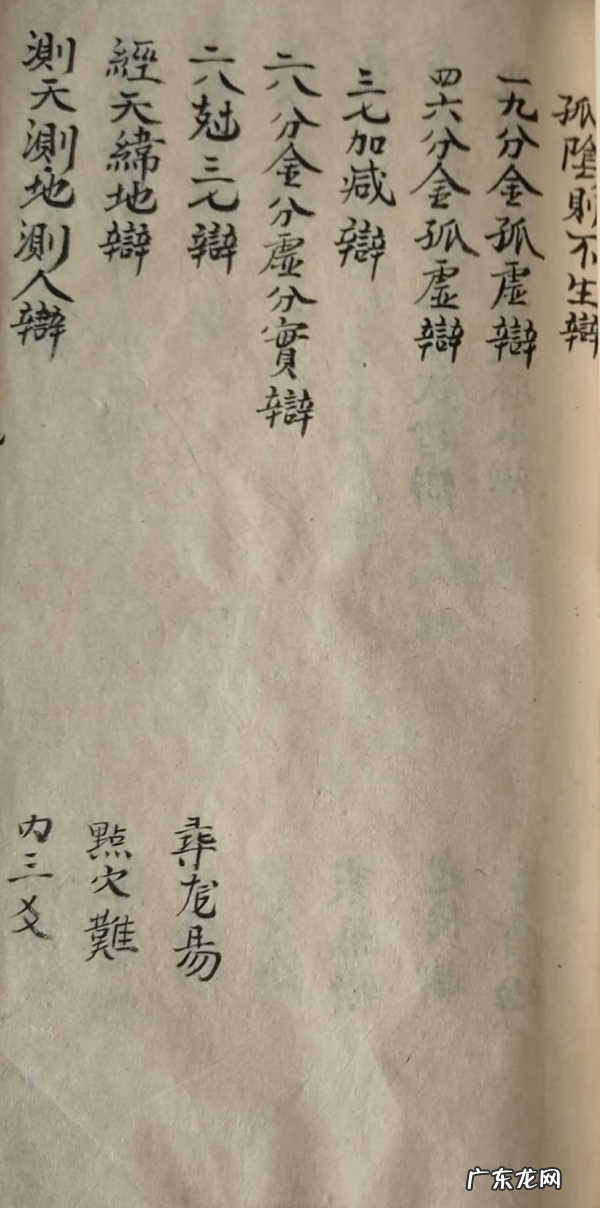 孤陰則不生辯
一九分金孤虛辯
四六分金孤虛辯
三七加减辯
二八分金分虛分實辯
二八尅三七辯
經天緯地辯
測天測地測人辯
尋龙易
點穴難
内三爻
广东龙网